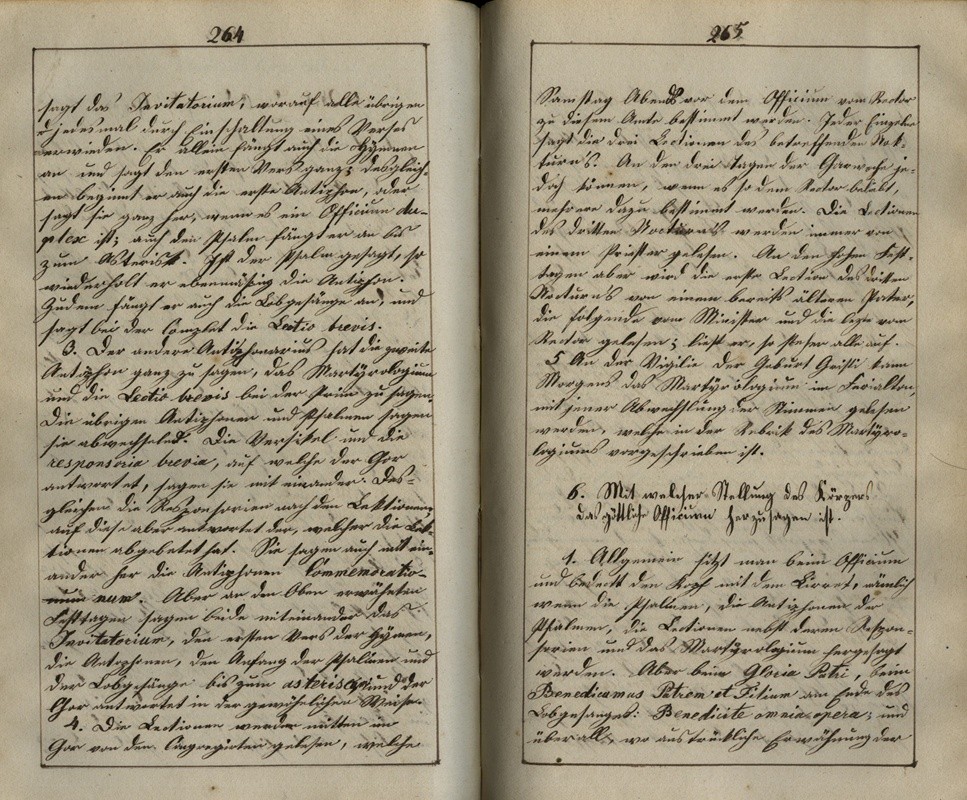 264
sagt das Invitatorium, worauf alle übrigen
jedesmal durch Einschaltung eines Verses
erwiedern. Er allein fängt auch die Hymnen
an und sagt den ersten Vers ganz; desgleich-
en beginnt er auch die erste Antiphon, oder
sagt sie ganz her, wenn es ein Officium du-
plex ist; auch den Psalm fängt er an bis
zum Asterisk. Ist der Psalm gesagt, so
wiederholt er ebenmäßig die Antiphon.
Zudem fängt er auch die Lobgesänge an, und
sagt bei der Complet die Lectio brevis.
3. Der andere Antiphonarius hat die zweite
Antiphon ganz zu sagen, das Martyrologium
und die Lectio brevis bei der Prim zu sagen.
Die übrigen Antiphonen und Psalmen sagen
sie abwechselnd. Die Versikel und die
responsoria brevia, auf welche der Chor
antwortet, sagen sie mit einander. Des-
gleichen die Responsorien nach den Lektionen;
auf diese aber antwortet der, welcher die Lek-
tionen abgebetet hat. Sie sagen auch mit ein-
ander her die Antiphonen Commemoratio-
num. Aber an den Oben erwähnten
Festtagen sagen beide miteinander das
Invitatorium, den ersten Vers der Hymen,
die Antiphonen, den Anfang der Psalmen und
der Lobgesänge bis zum asteriscus und der
Chor antwortet in der gewöhnlichen Weise.
4. Die Lectionen werden mitten im
Chor von den Eingeteilten gelesen, welche
265
Samstag Abends vor dem Officium vom Rector
zu diesem Amte bestimmt werden. Jeder
sagt die drei Lectionen des betreffenden Nok-
turn's. An den drei Tagen der Charwoche je-
doch können, wenn es so dem Rector beliebt,
mehrere dazu bestimmt werden. Die Lectionen
des dritten Nocturn's werden immer von
einem Priester gelesen. An den hohen Fest-
tagen aber wird die erste Lection des dritten
Nocturn's von einem bereits älteren Pater,
die folgende vom Minister und die letzte vom
Rector gelesen; liest er, so stehen alle auf.
5 An der Vigilie der Geburt Christi kann
Morgens das Martyrologium im Ferialton,
mit jener Abwechslung der Stimmen gelesen
werden, welche in der Rubrik des Martyro-
logiums vorgeschrieben ist.
6. Mit welcher Stellung des Körpers
das göttliche Officium herzusagen ist.
1. Allgemein sitzt man beim Officium
und bedeckt den Kopf mit dem Birret, nämlich
wenn die Psalmen, die Antiphonen der
Psalmen, die Lectionen nebst deren Respon-
sorien und das Martyrologium hergesagt
werden. Aber beim Gloria Patri, beim
Benedicamus Patrem et Filium am Ende des
Lobgesanges: Benedicite omnia opera; und
überall, wo ausdrückliche Erwähnung der